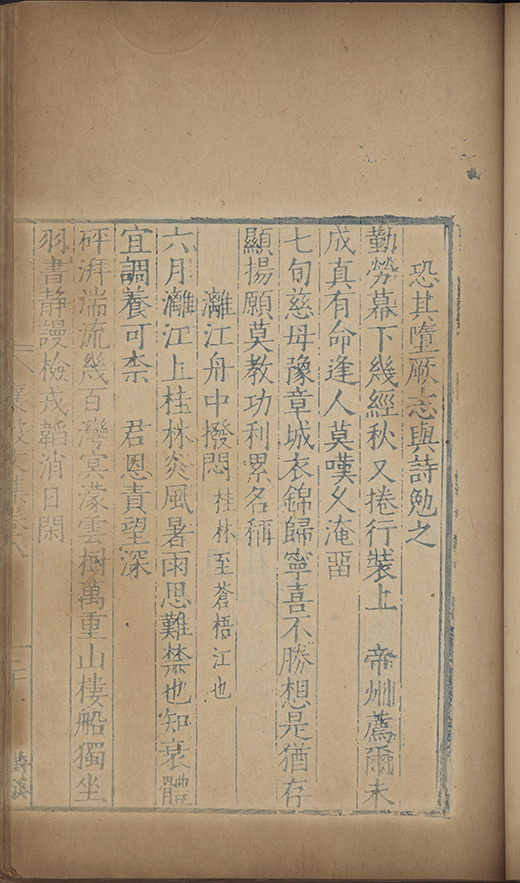 恐其墮厥志與詩勉之
勤勞幕下幾經秋又捲行裝上　帝州薦爾未
成真有命逢人莫嘆久淹畱
七旬慈母豫章城衣錦歸寧喜不勝想是猶存
顯揚願莫教功利累名稱
灕江舟中撥悶桂林至蒼梧江也
六月灕江上桂林炎風暑雨思難禁也知衰體
宜調養可柰　君恩責望深
砰湃湍流幾百灣冥濛雲樹萬重山樓船獨坐
羽書靜謾檢戎韜消日閑
襄毅文集卷八